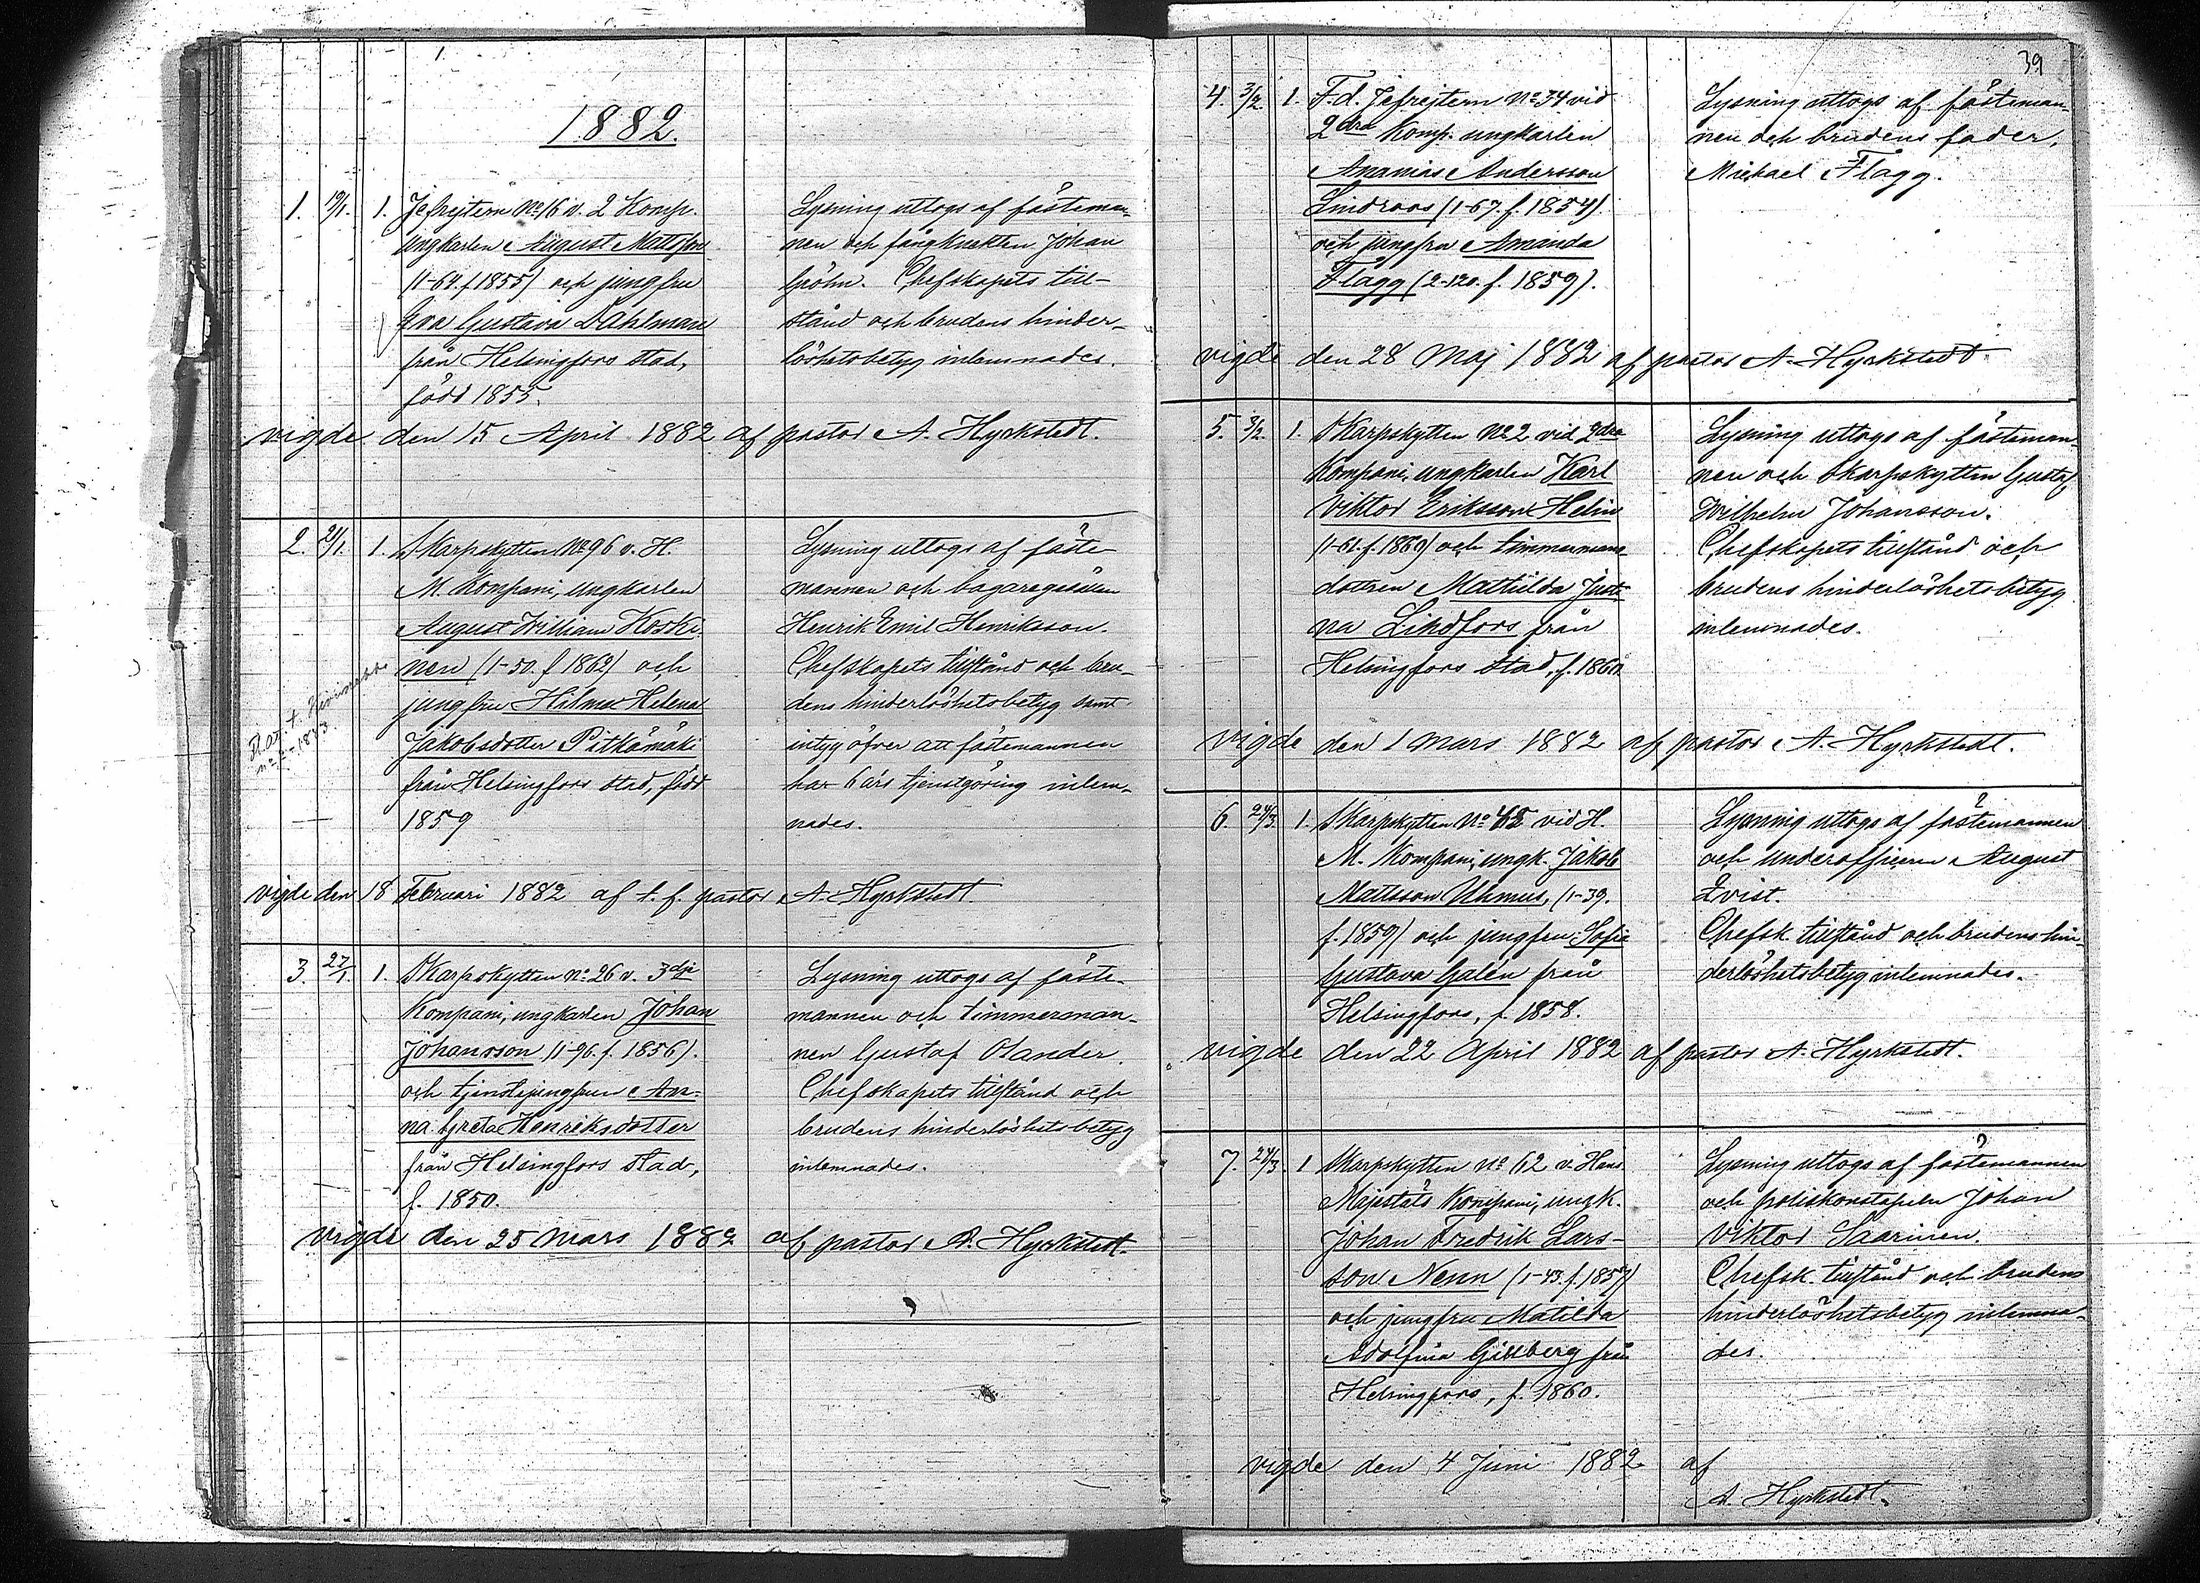 1882.
1. 19/1. 1. Jefrejtern No 16 v. 2 Komp.
ungkarlen August Mattsson
(1-64. f 1855) och jungfru
Eva Gustava Dahlman
från Helsingfors stad,
född 1855.
Lysning uttogs af fästeman-
nen och fångknekten Johan
Chefskapets till-
stånd och brudens hinder-
löshetsbetyg inlemnades.
vigde den 15 April 1882 af pastor A. Hyrkstedt.
2. 21/1. 1. Skarpskytten No 96 v. H.
M. Kompani, ungkarlen
August William Koski-
nen (1-50. f 1862) och
jungfru Hilma Helena
Jakobsdotter Pitkämäki
från Helsingfors stad, född
1859
Lysning uttogs af fäste-
mannen och bagaregesällen
Henrik Emil Henriksson.
Chefskapets tillstånd och bru-
dens hinderlöshetsbetyg samt
intyg öfver att fästemannen
har 6 års tjenstgöring inlem-
nades.
vigde den 18 Februari 1882 af t. f. pastor A. Hyrkstedt.
3. 27/1. 1. Skarpskytten No 26 v. 3dje
Kompani, ungkarlen Johan
Johansson (1-96. f. 1856).
och tjenstejungfrun An-
na Greta Henriksdotter
från Helsingfors stad,
f. 1850.
Lysning uttogs af fäste-
mannen och timmerman-
nen Gustaf Olander.
Chefskapets tillstånd och
brudens hinderlöshetsbetyg
inlemnades.
vigde den 25 mars 1882 af pastor A. Hyrkstedt.
39
4. 3/2. 1. F.d. Jefrejtern No 34 vid
2dra Komp. ungkarlen
Ananias Andersson
Lindroos (1-67. f. 1854).
och jungfru Amanda
Flagg (2-120. f. 1859).
Lysning uttogs af fästeman-
nen och brudens fader,
Mickael Flagg.
vigde den 28 Maj 1882 af pastor A. Hyrkstedt.
5. 3/2. 1. Skarpskytten No 2 vid 2dra
Kompani, ungkarlen Karl
Viktor Eriksson Helin
(1-61. f. 1860) och timmermans
dottren Mathilda Justi-
na Lindfors från
Helsingfors stad, f. 1860.
Lysning uttogs af fästeman-
nen och Skarpskytten Gustaf
Wilhelm Johansson.
Chefskapets tillstånd och
brudens hinderlöshetsbetyg
inlemnades.
vigde den 1 mars 1882 af pastor A. Hyrkstedt.
6. 24/3. 1. Skarpskytten No vid H.
M. Kompani, ungk. Jakob
Mattsson Uhmus, (1-39.
f. 1859) och jungfru Sofia
Gustava Galén från
Helsingfors, f. 1858.
Lysning uttogs af fästemannen
och underofficern August
Qvist.
Chefsk. tillstånd och brudens hin-
derlöshetsbetyg inlemnades.
vigde den 22 April 1882 af pastor A. Hyrkstedt.
7. 24/3. 1 Skarpskytten No 62 v. Hans
Majestäts Kompani, ungk.
Johan Fredrik Lars-
son Nenn (1-43. f. 1857)
och jungfru Matilda
Adolfina Gillberg från
Helsingfors, f. 1860.
Lysning uttogs af fästemannen
och poliskonstapeln Johan
Viktor Saarinen.
Chefsk. tillstånd och brudens
hinderlöshetsbetyg inlemna-
des.
vigde den 4 Juni 1882 af
A. Hyrkstedt.